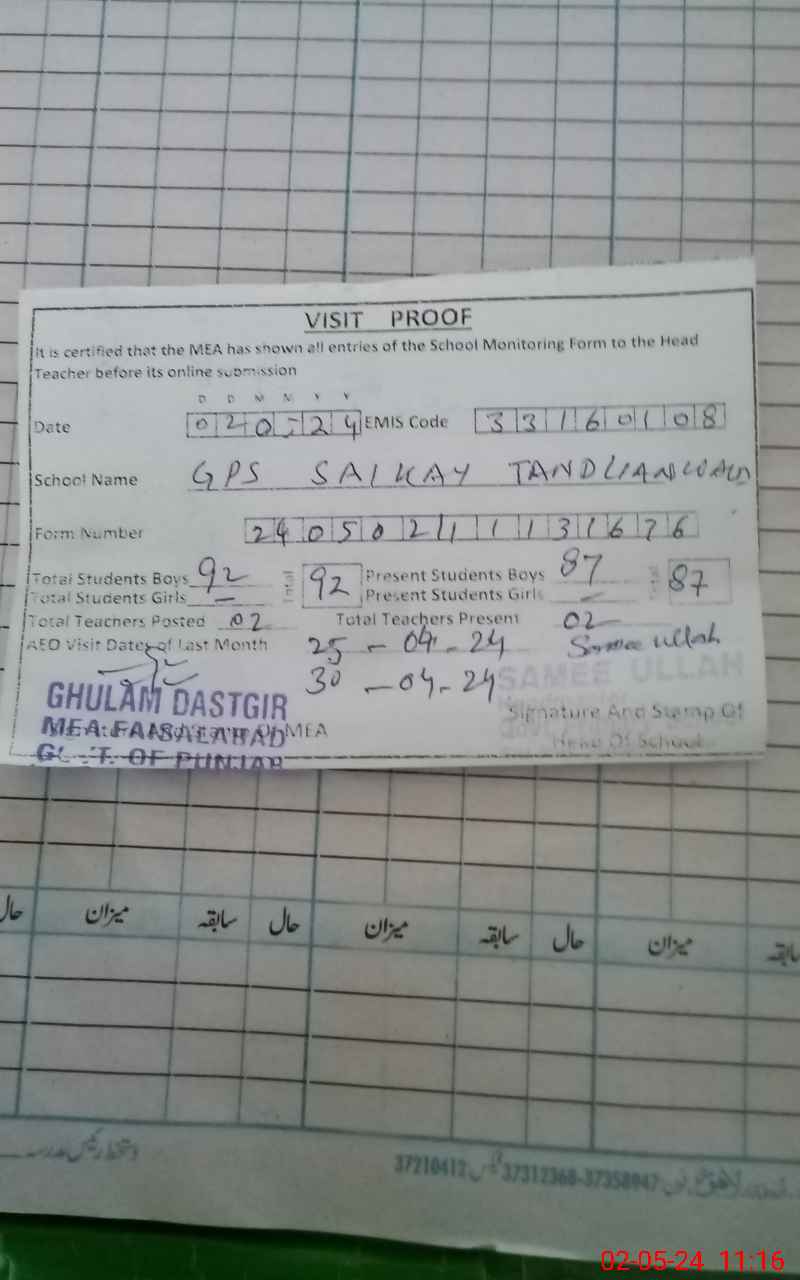 VISIT PROOF
It is certified that the MEA has shown all entries of the School Monitoring Form to the Head
Teacher before its online submission
D D M M Y Y
Date 020524 EMIS Code 33160108
School Name GPS SAIKAY TANDLIANWALA
Form Number 24050211131676
Total Students Boys 92 92 Present Students Boys 87 87
Total Students Girls — Present Students Girls —
Total Teachers Posted 02 Total Teachers Present 02
AEO Visit Dates of Last Month 25-04-24 Samee ullah
30-04-24 SAMEE ULLAH
GHULAM DASTGIR Signature And Stamp Of
MEA FAISALABAD Of MEA Head Of School
GOVT. OF PUNJAB
حال میزان سابقہ حال میزان سابقہ حال میزان سابقہ
دستخط رئیس مدرسہ
37210412 37312368-37358947
02-05-24 11:16